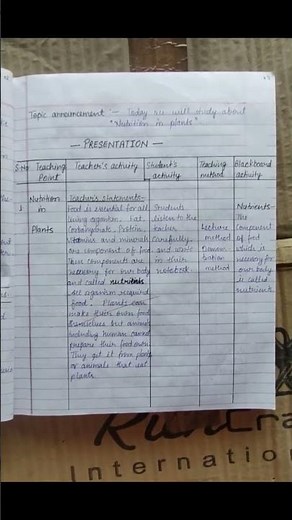 Topic announcement :- Today we will study about
"Nutrition in plants"
— PRESENTATION —
S.No Teaching Point Teacher's activity Student's activity Teaching method Blackboard activity
1 Nutrition in Plants
Teacher's Statements:-
Food is essential for all
living organism. Fat,
Carbohydrate, Protein,
vitamins and minerals
are component of food
These components are
necessary for our body
and called nutrients
All organism required
food. Plants can
make their own food
themselves but animals
including human cannot
prepare their food own.
They get it from plants
or animals that eat
plants.
Students
listen to the
teacher
carefully
and write
in their
notebook
Lecture
method
Demons-
tration
method
Nutrients-
the
component
of food
which is
necessary for
our body
is called
nutrients
International